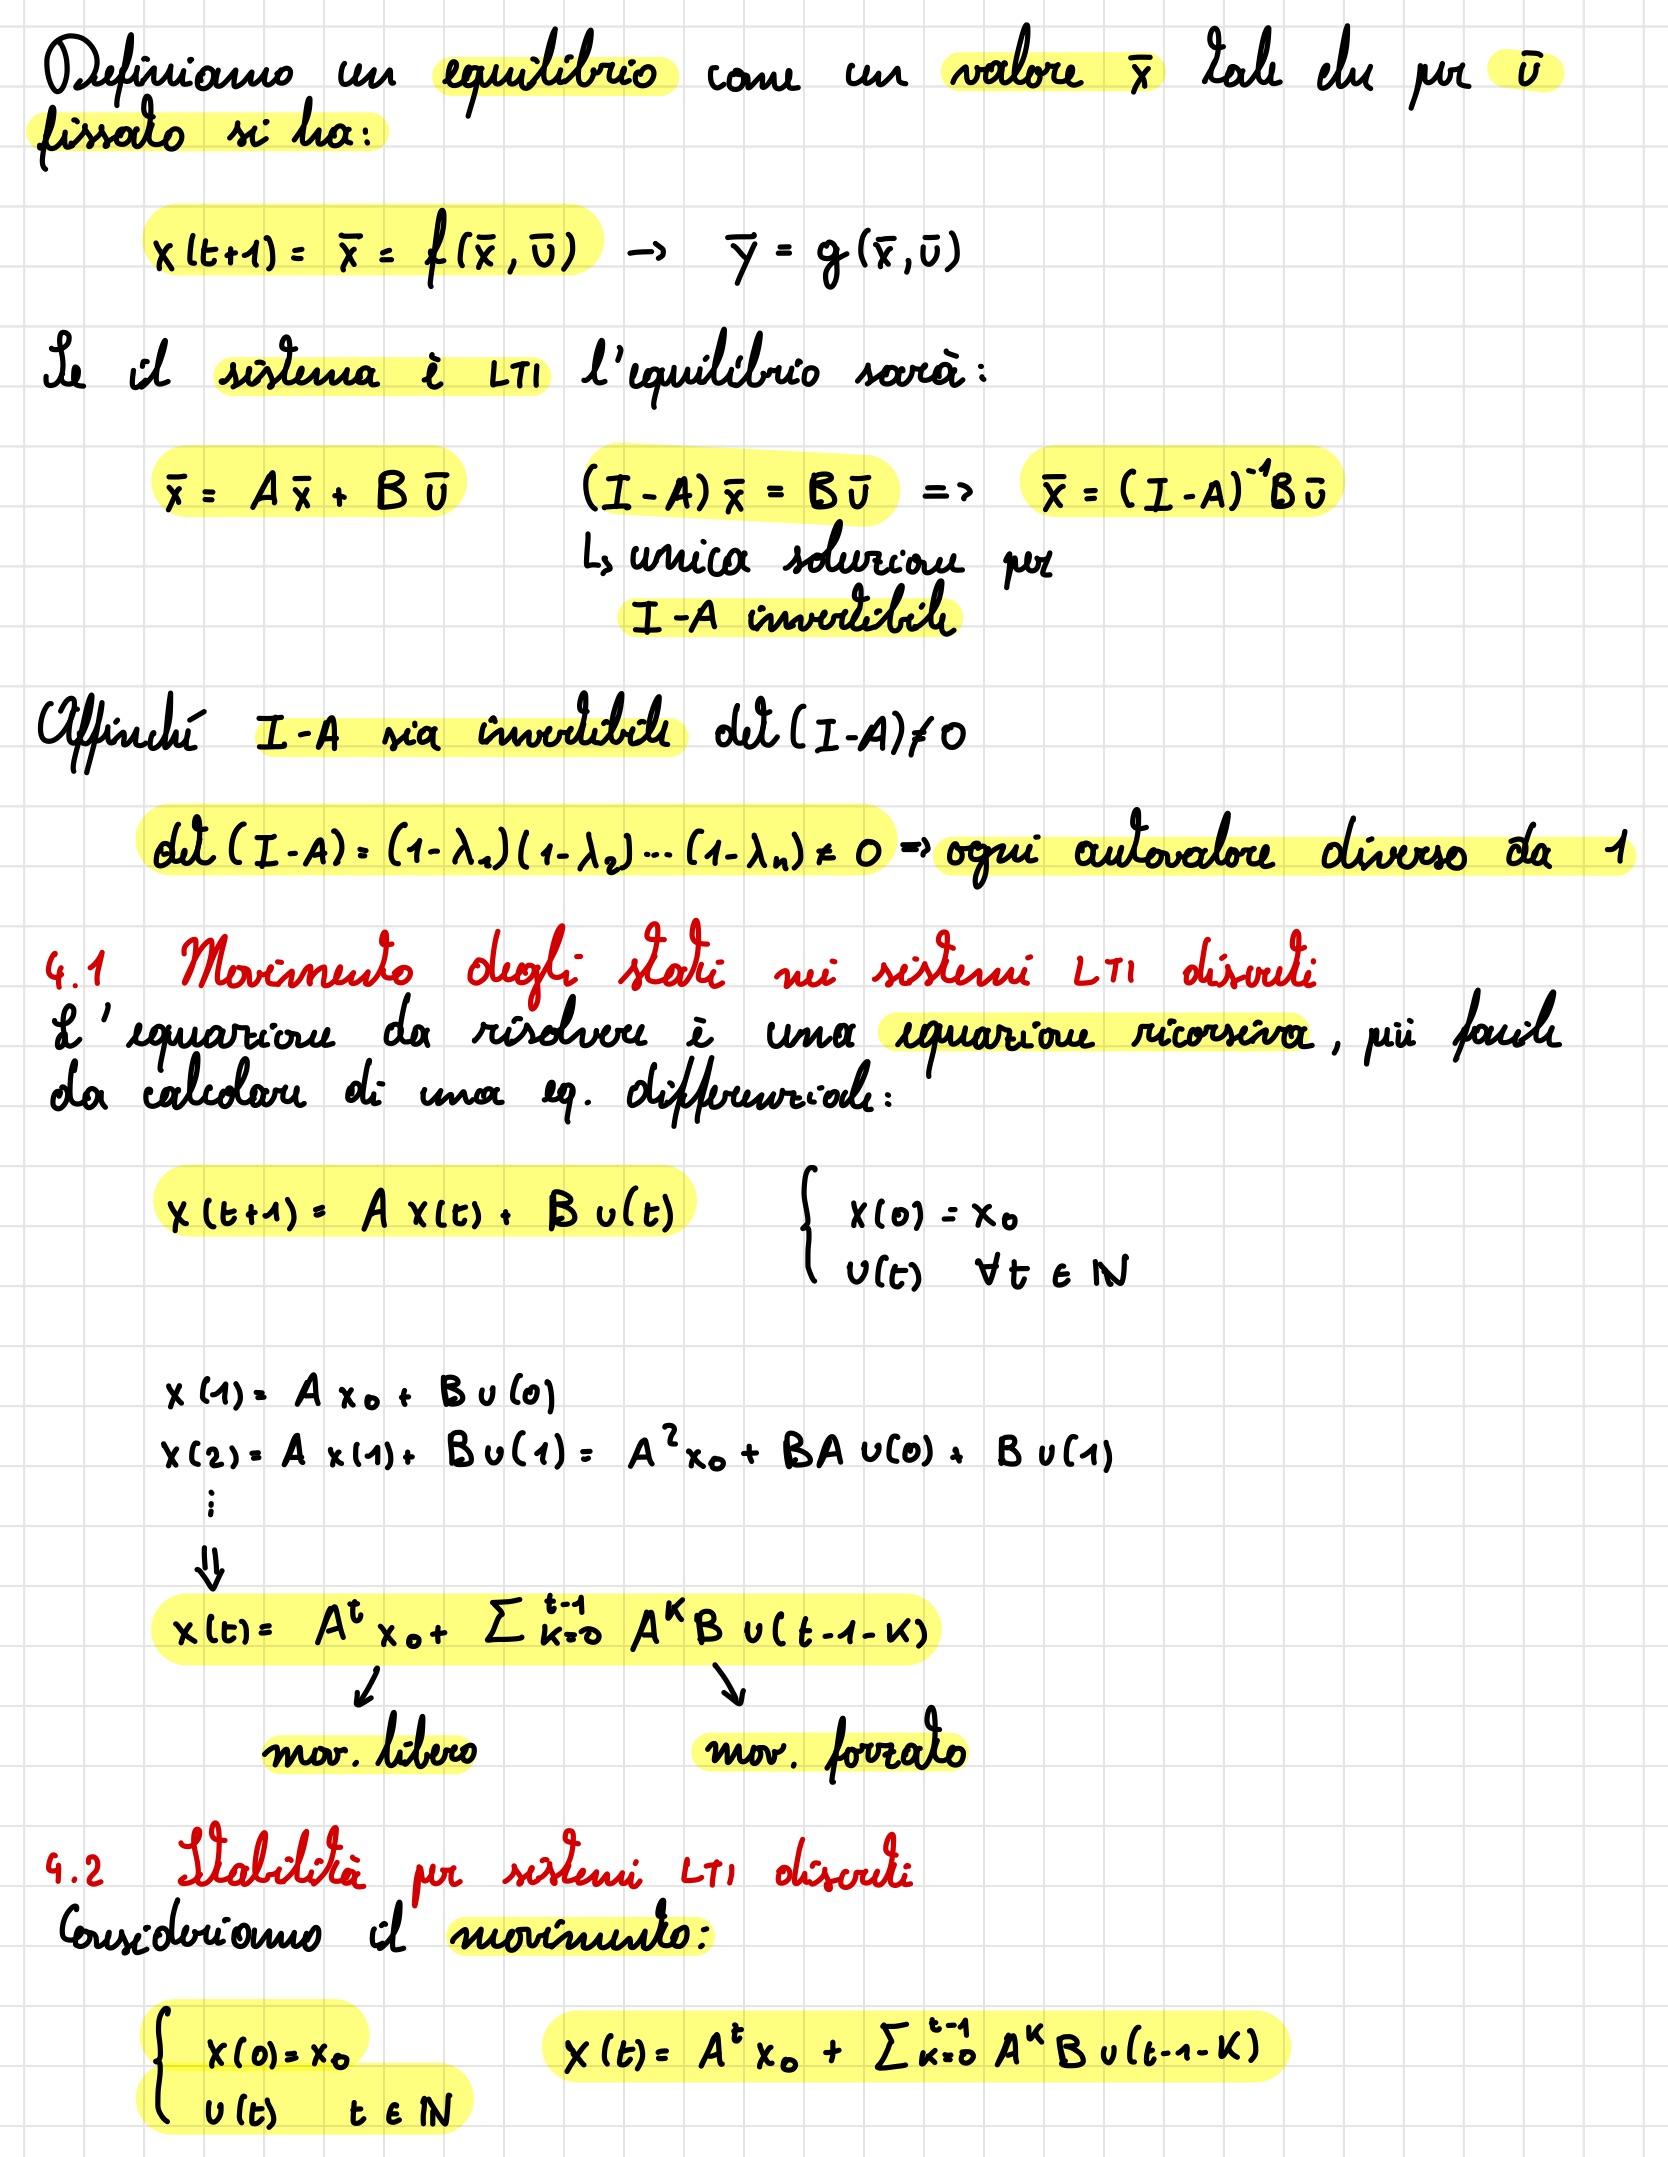 Definiamo un equilibrio come un valore x̄ tale che per ū
fissato si ha:
x(t+1) = x̄ = f(x̄, ū) → ȳ = g(x̄, ū)
Se il sistema è LTI l'equilibrio sarà:
x̄ = A x̄ + B ū (I-A) x̄ = B ū => x̄ = (I-A)⁻¹ B ū
↳ unica soluzione per
I-A invertibile
Affinché I-A sia invertibile det(I-A) ≠ 0
det(I-A) = (1-λ₁)(1-λ₂)...(1-λₙ) ≠ 0 => ogni autovalore diverso da 1
4.1 Movimento degli stati nei sistemi LTI discreti
L'equazione da risolvere è una equazione ricorsiva, più facile
da calcolare di una eq. differenziale:
x(t+1) = A x(t) + B u(t) { x(0) = x₀
u(t) ∀t ∈ ℕ
x(1) = A x₀ + B u(0)
x(2) = A x(1) + B u(1) = A² x₀ + BA u(0) + B u(1)
⋮
⇓
x(t) = Aᵗ x₀ + ∑ᵗ⁻¹ₖ₌₀ Aᴷ B u(t-1-K)
↙ ↘
mov. libero mov. forzato
4.2 Stabilità per sistemi LTI discreti
Consideriamo il movimento:
{ x(0) = x₀ x(t) = Aᵗ x₀ + ∑ᵗ⁻¹ₖ₌₀ Aᴷ B u(t-1-K)
u(t) t ∈ ℕ